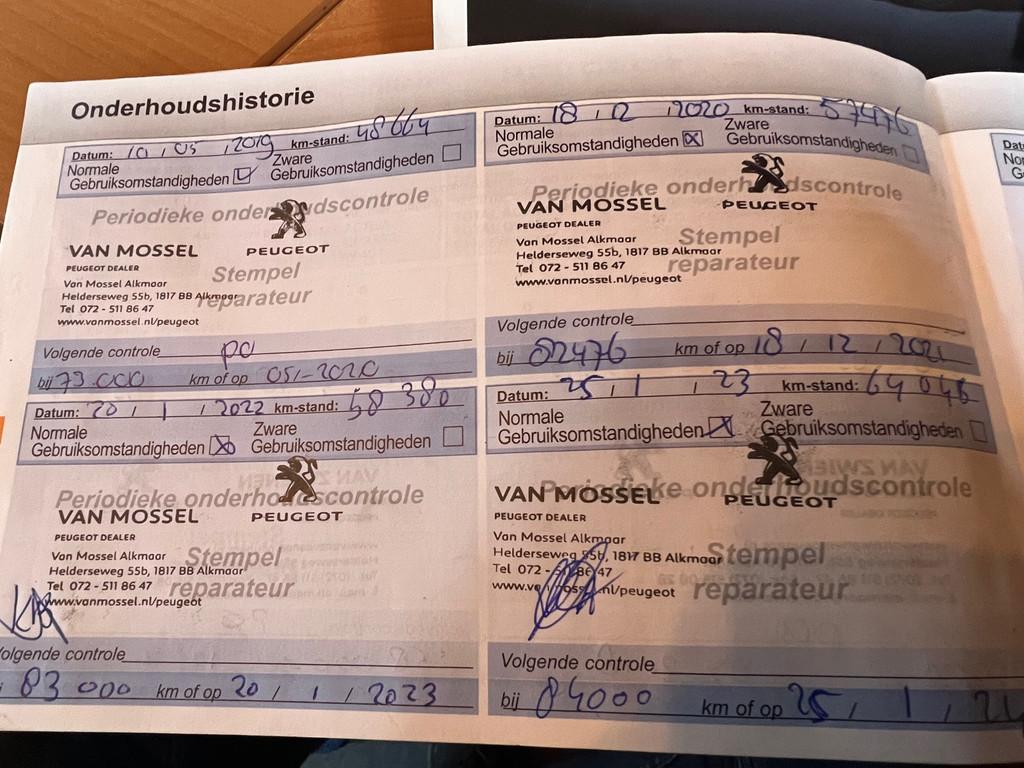 Onderhoudshistorie
Datum: 10 / 05 / 2019 km-stand: 48664
Normale
Gebruiksomstandigheden
Zware
Gebruiksomstandigheden
Periodieke onderhoudscontrole
VAN MOSSEL
PEUGEOT
PEUGEOT DEALER
Stempel
Van Mossel Alkmaar
Helderseweg 55b, 1817 BB Alkmaar
reparateur
Tel 072 - 511 86 47
www.vanmossel.nl/peugeot
Volgende controle po
bij 73000 km of op 05/-2020
Datum: 18 / 12 / 2020 km-stand: 57476
Normale
Gebruiksomstandigheden
Zware
Gebruiksomstandigheden
Periodieke onderhoudscontrole
VAN MOSSEL
PEUGEOT
PEUGEOT DEALER
Van Mossel Alkmaar
Stempel
Helderseweg 55b, 1817 BB Alkmaar
Tel 072 - 511 86 47
reparateur
www.vanmossel.nl/peugeot
Volgende controle
bij 82476 km of op 18 / 12 / 2021
Datum: 20 / 1 / 2022 km-stand: 58 380
Normale
Gebruiksomstandigheden
Zware
Gebruiksomstandigheden
Periodieke onderhoudscontrole
VAN MOSSEL
PEUGEOT
PEUGEOT DEALER
Van Mossel Alkmaar
Stempel
Helderseweg 55b, 1817 BB Alkmaar
Tel 072 - 511 86 47
reparateur
www.vanmossel.nl/peugeot
Volgende controle
83 000 km of op 20 / 1 / 2023
Datum: 25 / 1 / 23 km-stand: 64046
Normale
Gebruiksomstandigheden
Zware
Gebruiksomstandigheden
Periodieke onderhoudscontrole
VAN MOSSEL
PEUGEOT
PEUGEOT DEALER
Van Mossel Alkmaar
Helderseweg 55b, 1817 BB Alkmaar
Stempel
Tel 072 - 511 86 47
www.vanmossel.nl/peugeot
reparateur
Volgende controle
bij 84000 km of op 25 / 1 /